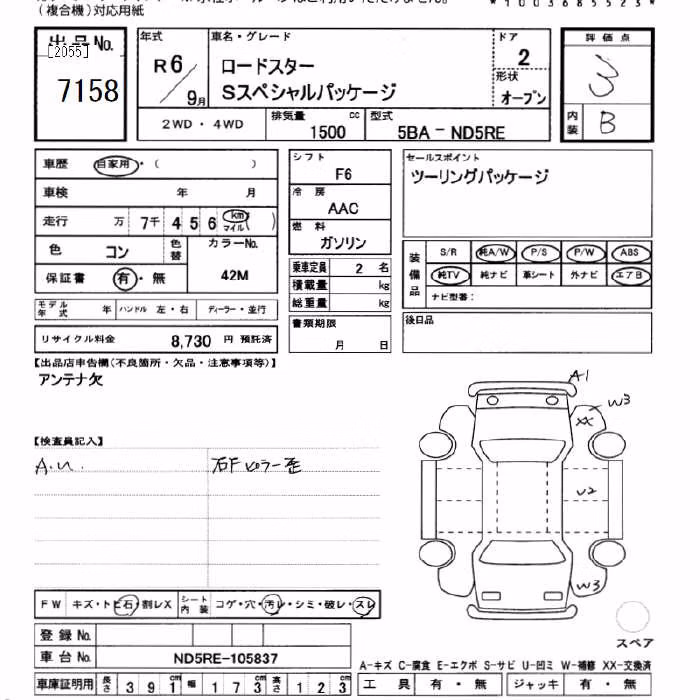 (複合機)対応用紙
*1003685523*
出品No.
[2055]
7158
年式
R6/9月
車名・グレード
ロードスター
Sスペシャルパッケージ
ドア
2
形状
オープン
評価点
3
内装
B
2WD・4WD
排気量
1500 cc
型式
5BA-ND5RE
車歴 自家用・( )
車検 年 月
走行 万 7千 4 5 6 km マイル ( )
色 コン
色替
カラーNo.
42M
保証書 有・無
モデル年式 年 ハンドル 左・右 ディーラー・並行
リサイクル料金 8,730 円 預託済
シフト
F6
冷房
AAC
燃料
ガソリン
乗車定員 2 名
積載量 kg
総重量 kg
書類期限
月 日
セールスポイント
ツーリングパッケージ
装備品
S/R 純A/W P/S P/W ABS
純TV 純ナビ 革シート 外ナビ エアB
ナビ型番:
後日品
【出品店申告欄(不良箇所・欠品・注意事項等)】
アンテナ欠
【検査員記入】
A.u.
石Fピラー歪
A1
W3
XX
U2
W3
スペア
FW キズ・トビ石・割レX
シート内装 コゲ・穴・汚レ・シミ・破レ・スレ
登録No.
車台No. ND5RE-105837
車庫証明用 長さ 391cm 幅 173cm 高さ 123cm
A-キズ C-腐食 E-エクボ S-サビ U-凹ミ W-補修 XX-交換済
工具 有・無 ジャッキ 有・無